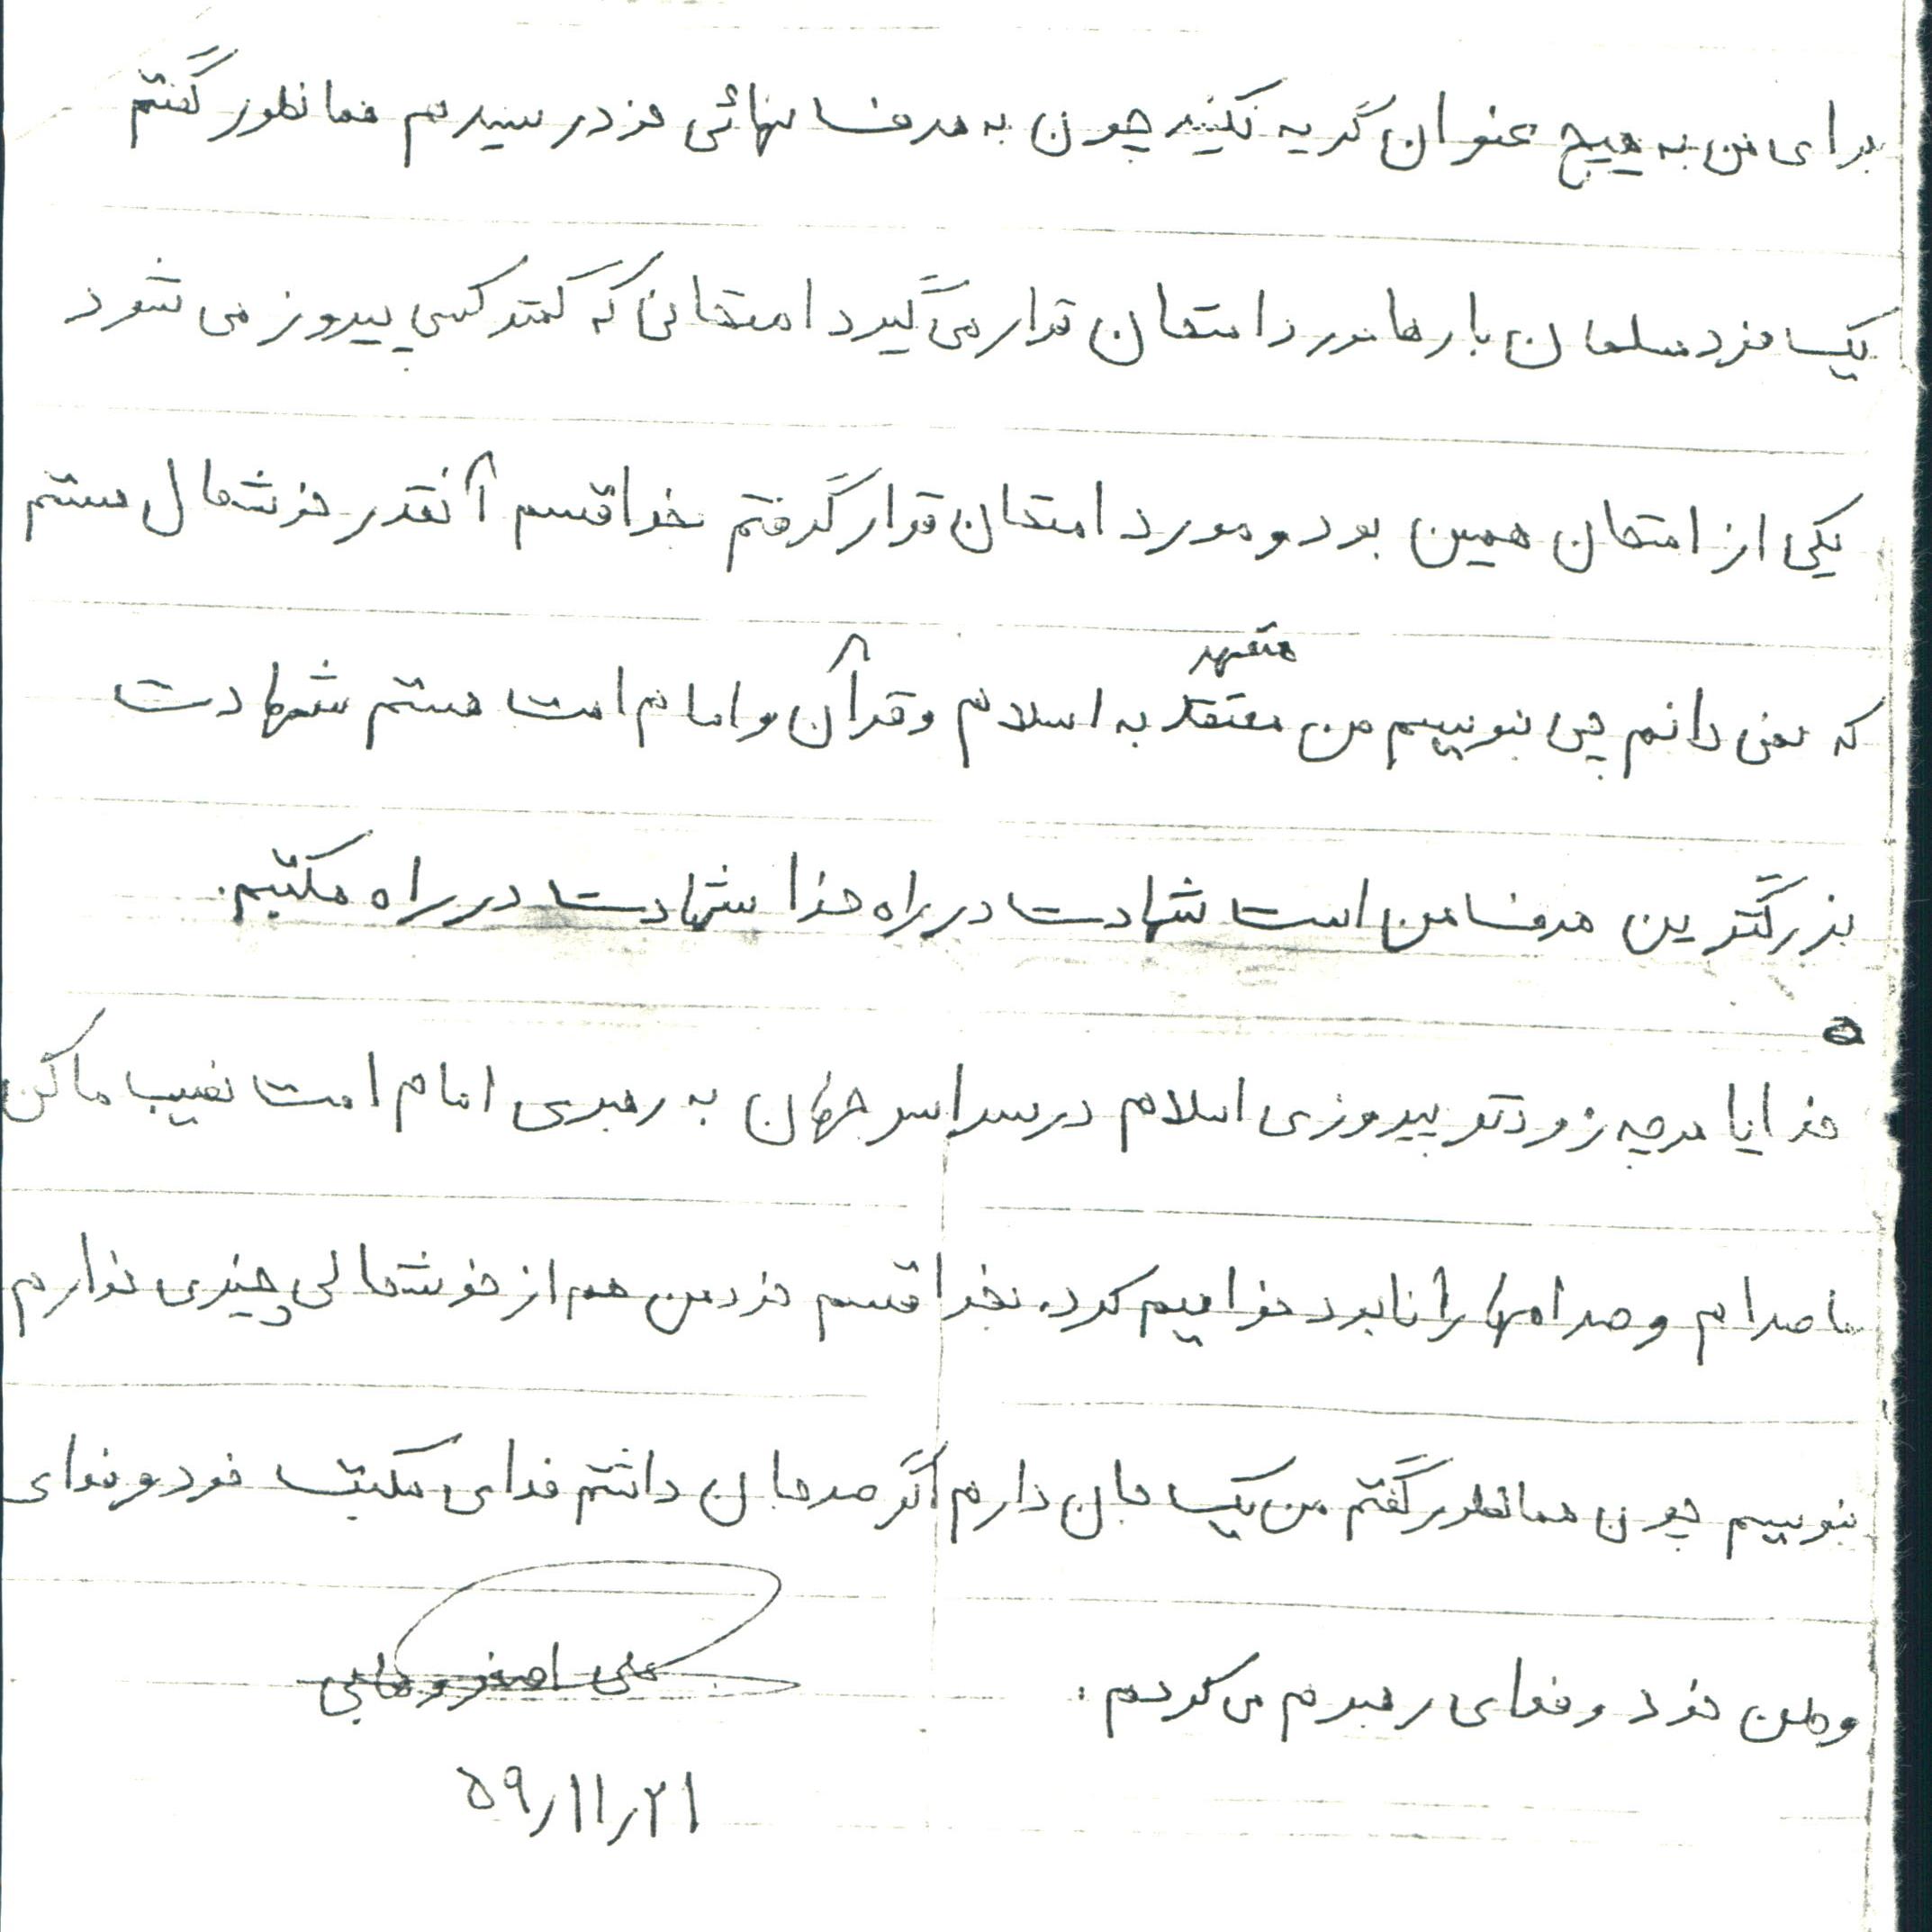 برای من به هیچ عنوان گریه نکنید چون به هدف نهائی خود رسیدم همانطور گفتم
یک فرد مسلمان بارها مورد امتحان قرار می گیرد امتحانی که کمتر کسی پیروز می شود
یکی از امتحان همین بود و مورد امتحان قرار گرفتم بخدا قسم آنقدر خوشحال هستم
متعهد
که نمی دانم چی بنویسم من معتقد به اسلام و قرآن و امام امت هستم شهادت
بزرگترین هدف من است شهادت در راه خدا شهادت در راه مکتبم.
خدایا هرچه زودتر پیروزی اسلام در سراسر جهان به رهبری امام امت نصیب ما کن
ما صدام و صدامها را نابود خواهیم کرد. بخدا قسم خود من هم از خوشحالی چیزی ندارم
بنویسم چون همانطور گفتم من یک جان دارم اگر صد جان داشتم فدای مکتب خود و فدای
وطن خود و فدای رهبرم می کردم.
علی اصغر وهابی
۵۹/۱۱/۲۱